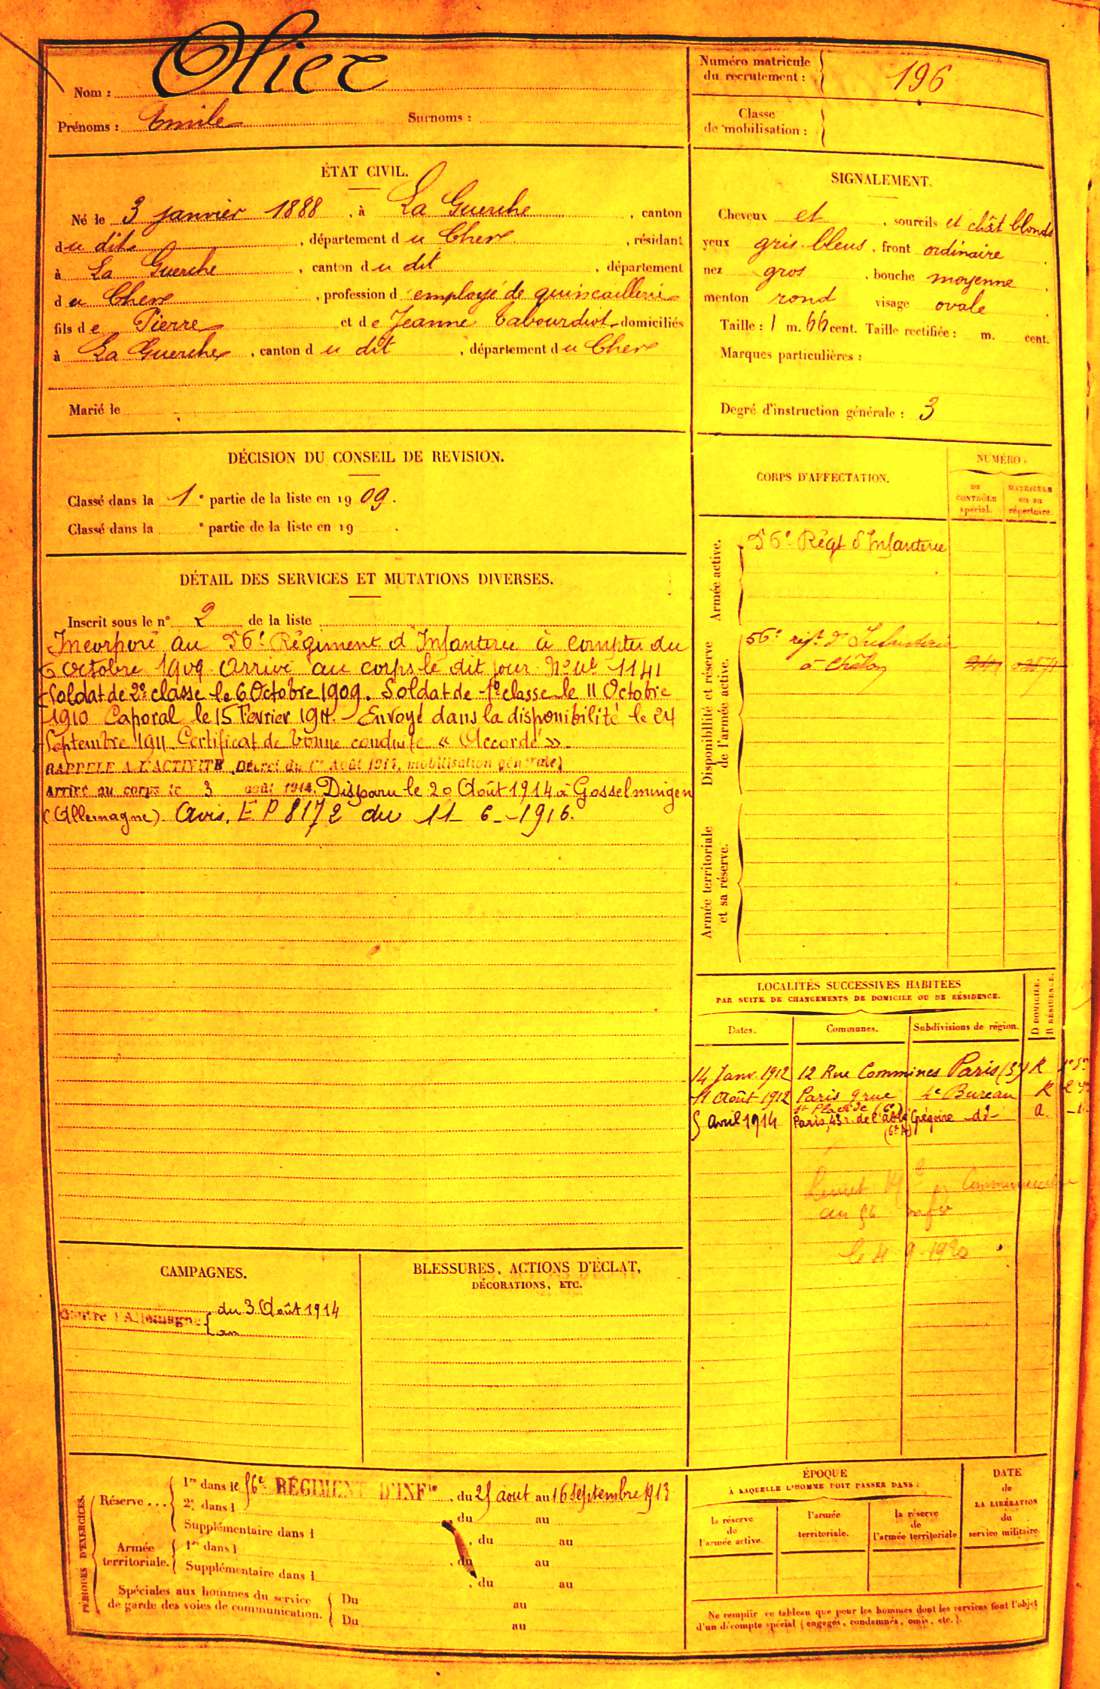 Nom : Olier
Prénoms : Emile Surnoms :
Numéro matricule
du recrutement : 196
Classe
de mobilisation :
ÉTAT CIVIL.
Né le 3 janvier 1888, à La Guerche, canton
du dit, département du Cher, résidant
à La Guerche, canton du dit, département
du Cher, profession d employé de quincaillerie
fils de Pierre et de Jeanne Tabourdiot domiciliés
à La Guerche, canton du dit, département du Cher
Marié le
SIGNALEMENT.
Cheveux et, sourcils et chât blonds
yeux gris-bleus, front ordinaire
nez gros, bouche moyenne
menton rond visage ovale
Taille : 1 m. 66 cent. Taille rectifiée : m. cent.
Marques particulières :
Degré d'instruction générale : 3
DÉCISION DU CONSEIL DE REVISION.
Classé dans la 1e partie de la liste en 1909.
Classé dans la e partie de la liste en 19 .
DÉTAIL DES SERVICES ET MUTATIONS DIVERSES.
Inscrit sous le n° 2 de la liste
Incorporé au 56e Régiment d'Infanterie à compter du
6 Octobre 1909 Arrivé au corps le dit jour No Mle 1141
Soldat de 2e classe le 6 Octobre 1909. Soldat de 1e classe le 11 Octobre
1910 Caporal le 15 Février 1911. Envoyé dans la disponibilité le 24
Septembre 1911. Certificat de bonne conduite « Accordé ».
RAPPELÉ A L'ACTIVITÉ (Décret du 1er Août 1914, mobilisation générale)
Arrivé au corps le 3 août 1914. Disparu le 20 Août 1914 à Gosselmingen
(Allemagne). Avis. E P 8172 du 11-6-1916.
CORPS D'AFFECTATION.
NUMÉRO
DE CONTRÔLE spécial.
MATRICULE ou au répertoire.
Armée active.
56e Régt d'Infanterie
Disponibilité et réserve
de l'armée active.
56e régt d'Infanterie
à Châlon
Armée territoriale
et sa réserve.
LOCALITÉS SUCCESSIVES HABITÉES
PAR SUITE DE CHANGEMENTS DE DOMICILE OU DE RÉSIDENCE.
D DOMICILE.
R RÉSIDENCE.
Dates. Communes. Subdivisions de région.
14 Janv. 1912 12 Rue Commines Paris (3e) R
11 Août 1912 Paris 9 rue 4e Bureau R
St Placide (6e)
5 Avril 1914 Paris, 43 r. de l'abbé Grégoire -di-
(6e)
au 56
le 4 9 1920
CAMPAGNES.
Contre l'Allemagne { du 3 Août 1914
au
BLESSURES, ACTIONS D'ÉCLAT,
DÉCORATIONS, ETC.
PÉRIODES D'EXERCICES.
Réserve ... 1re dans le 56e RÉGIMENT D'INFie, du 25 aout au 16 Septembre 1913
2e dans l , du au
Supplémentaire dans l , du au
Armée
territoriale. 1re dans l , du au
Supplémentaire dans l , du au
Spéciales aux hommes du service
de garde des voies de communication. Du au
Du au
ÉPOQUE
À LAQUELLE L'HOMME DOIT PASSER DANS :
la réserve
de
l'armée active.
l'armée
territoriale.
la réserve
de
l'armée territoriale
DATE
de
LA LIBÉRATION
du
service militaire
Ne remplir ce tableau que pour les hommes dont les services font l'objet
d'un décompte spécial (engagés, condamnés, omis, etc.).